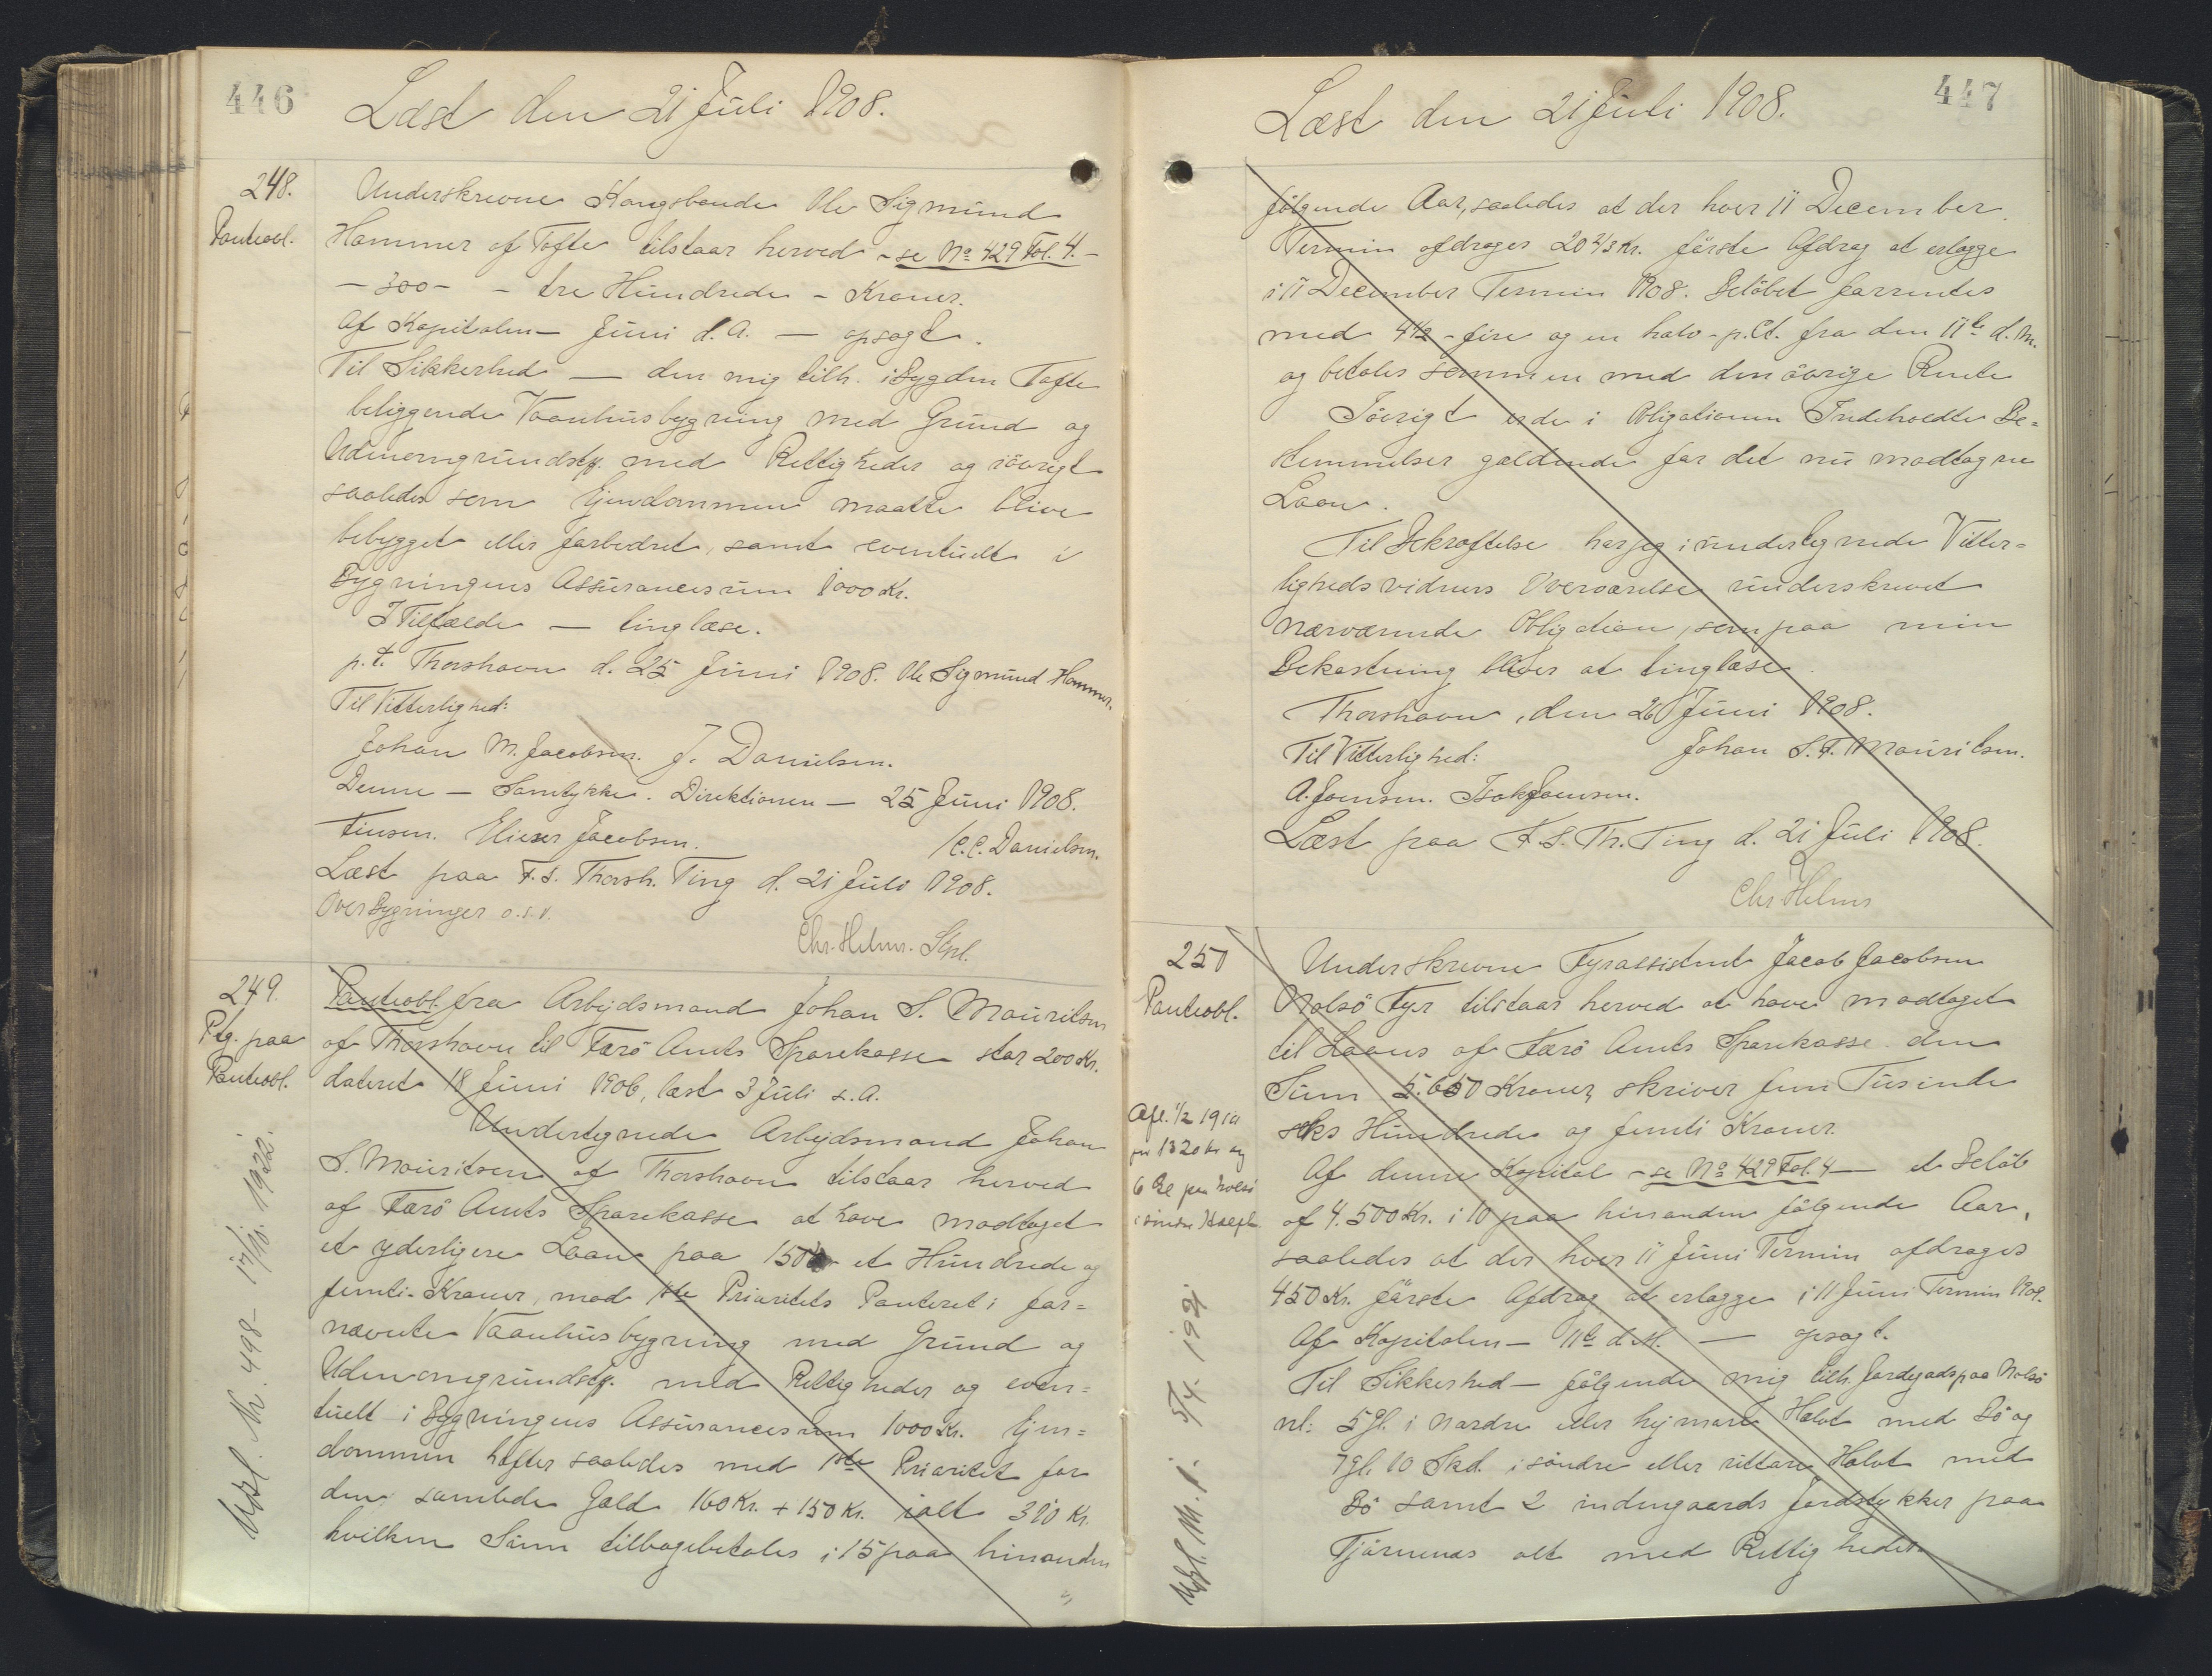 446
Læst den 21 Juli 1908.
248.
Panteobl.
Underskrevne Kongsbonde Ole Sigmund
Hammer af Tofte tilstaar herved - se No 429 Fol. 4. -
- 300 - - tre Hundrede - Kroner.
Af Kapitalen - Juni d.A. - opsagt.
Til Sikkerhed - den mig tilh. i Bygden Tofte
beliggende Vaanhusbygning med Grund og
Udenomgrundstk. med Rettigheder og iøvrigt
saaledes som Ejendommen maatte blive
bebygget eller forbedret, samt eventuelt i
Bygningens Assurancesum 1000 Kr.
I Tilfælde - tinglæse.
p.t. Thorshavn d. 25 Juni 1908. Ole Sigmund Hammer.
Til Vitterlighed:
Johan M. Jacobsen. J. Danielsen.
Denne - Samtykke. Direktionen - 25 Juni 1908.
Finsen. Elieser Jacobsen. /C.C. Danielsen.
Læst paa F.S. Thorsh. Ting d. 21 Juli 1908.
Over Bygninger o.s.v.
Chr. Helms. Stpl.
249.
Ptg. paa
Panteobl.
Panteobl. fra Arbejdsmand Johan S. Mouritsen
af Thorshavn til Færø Amts Sparekasse stor 200 Kr.
dateret 18 Juni 1906, læst 3 Juli s.A.
Undertegnede Arbejdsmand Johan
S. Mouritsen af Thorshavn tilstaar herved
af Færø Amts Sparekasse at have modtaget
et yderligere Laan paa 150 et Hundrede og
femti - Kroner, mod 1ste Prioritets Panteret i for=
nævnte Vaanhusbygning med Grund og
Udenomgrundstk. med Rettigheder og even=
tuelt i Bygningens Assurancesum 1000 Kr. Ejen=
dommen hæfter saaledes med 1ste Prioritet for
den samlede Gæld 160 Kr. + 150 Kr. ialt 310 Kr.
hvilken Sum tilbagebetales i 15 paa hinanden
Udsl. Nr. 498 - 17/10. 1932.
447
Læst den 21 Juli 1908.
følgende Aar, saaledes at der hver 11 December
Termin afdrages 20 2/3 Kr. første Afdrag at erlægge
i 11 December Termin 1908. Beløbet forrentes
med 4 1/2 - fire og en halv - p.Ct. fra den 11te d.M.
og betales sammen med den øvrige Rente
Iøvrigt er de i Obligationen Indeholdte Be=
stemmelser gældende for det nu modtagne
Laan.
Til Bekræftelse har jeg i undertegnede Vitter=
lighedsvidners Overværelse underskrevet
nærværende Obligation, som paa min
Bekostning bliver at tinglæse.
Thorshavn, den 26 Juni 1908.
Til Vitterlighed: Johan S.F. Mouritsen.
A. Joensen. Isak Joensen.
Læst paa F.S. Th. Ting d. 21 Juli 1908.
Chr. Helms
250
Panteobl.
Underskrevne Fyrassistent Jacob Jacobsen
Nolsø Fyr tilstaar herved at have modtaget
til Laans af Færø Amts Sparekasse den
Sum 5.650 Kroner, skriver fem Tusinde
seks Hundrede og femti Kroner.
Af denne Kapital - se No 429 Fol. 4 - et Beløb
af 4.500 Kr. i 10 paa hinanden følgende Aar,
saaledes at der hver 11 Juni Termin afdrages
450 Kr. første Afdrag at erlægge i 11 Juni Termin 1909.
Af Kapitalen - 11te d.M. - opsagt.
Til Sikkerhed - følgende mig tilh. Jordegods paa Nolsø
nl: 5 Gl. i nordre eller hejmare Halvt med Bø og
7 Gl. 10 Skd. i søndre eller rittare Halvt med
Bø samt 2 indengaards Jordstykker paa
Tjørnenes alt med Rettigheder
Afl. 1/2 1910
for 1320 kr og
6 Gl paa Nolsø
i søndre Halft
Udsl. M. 1. 5/4. 1921